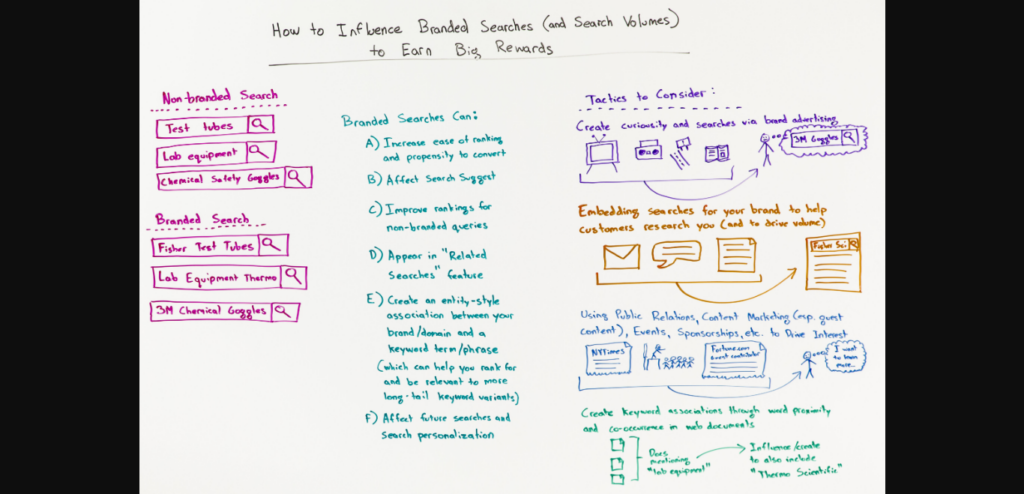 How to Influence Branded Searches (and Search Volumes)
to Earn Big Rewards
Non-branded Search
Test tubes
Lab equipment
Chemical Safety Goggles
Branded Search
Fisher Test Tubes
Lab Equipment Thermo
3M Chemical Goggles
Branded Searches Can:
A) Increase ease of ranking
and propensity to convert
B) Affect Search Suggest
C) Improve rankings for
non-branded queries
D) Appear in "Related
Searches" feature
E) Create an entity-style
association between your
brand/domain and a
keyword term/phrase
(which can help you rank for
and be relevant to more
long-tail keyword variants)
F) Affect future searches and
search personalization
Tactics to Consider:
Create curiousity and searches via brand advertising
3M Goggles
Embedding searches for your brand to help
customers research you (and to drive volume)
Fisher Sci
Using Public Relations, Content Marketing (esp. guest
content), Events, Sponsorships, etc. to Drive Interest
NYTimes
Fortune.com
event contributor
I want
to learn
more...
Create keyword associations through word proximity
and co-occurrence in web documents
Docs
mentioning
"lab equipment"
Influence/create
to also include
"Thermo Scientific"